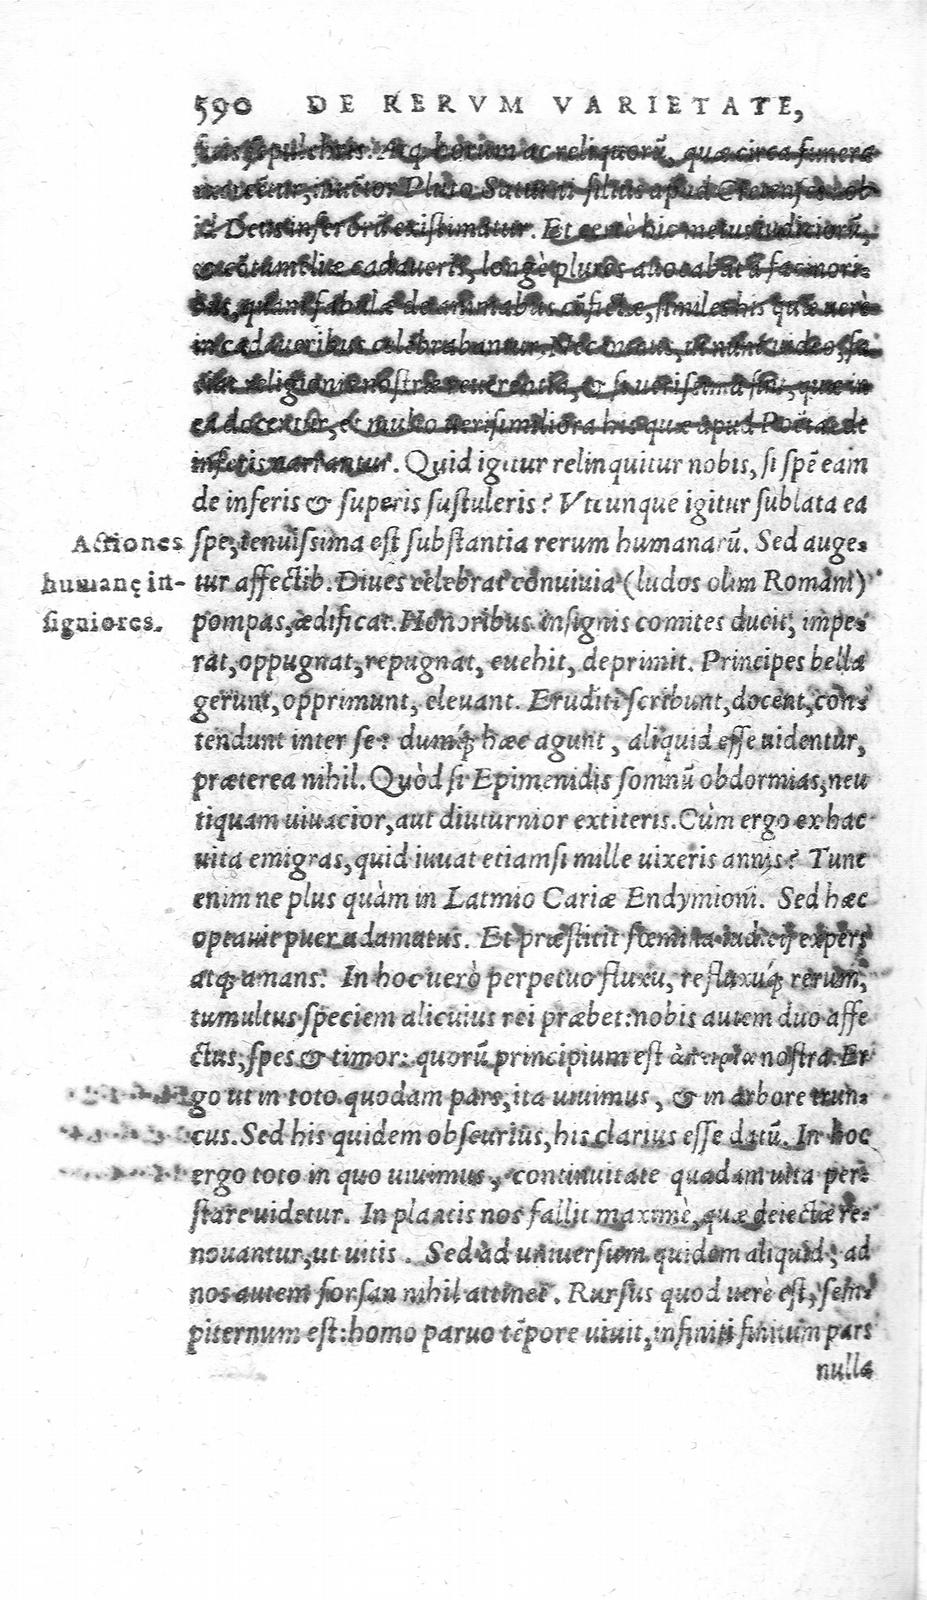 590 DE RERVM VARIETATE,
suis sepulchris. Atq; horum ac reliquorũ, quæ circa funera
Pluto Saturni filius apud Cretenses ob
id Deus inferorũ existimatur. Et certè hic metus iudiciorũ,
& cõtumeliæ cadaueris, longè plures auocabat à facinori-
bus, quàm fabulæ de animabus cõfictæ, similes his quæ uerè
in cadaueribus celebrabantur. Nec minus, ut nunc uideo, fa
ciat religionis nostræ reuerentia, & si uerissima sint, quæ in
ea docentur, et multo uerisimiliora his quæ apud Poëtas de
inferis narrantur. Quid igitur relinquitur nobis, si spẽ eam
de inferis & superis sustuleris? Vtcunque igitur sublata ea
Actiones
humanę in-
signiores.
spe, tenuissima est substantia rerum humanarũ. Sed auge-
tur affectib. Diues celebrat conuiuia (ludos olim Romani)
pompas, ædificat. Honoribus insignis comites ducit, impe-
rat, oppugnat, repugnat, euehit, deprimit. Principes bella
gerunt, opprimunt, eleuant. Eruditi scribunt, docent, con-
tendunt inter se: dumq́; hæc agunt, aliquid esse uidentur,
præterea nihil. Quòd si Epimenidis somnũ obdormias, neu
tiquam uiuacior, aut diuturnior extiteris. Cùm ergo ex hac
uita emigras, quid iuuat etiamsi mille uixeris annis? Tunc
enim ne plus quàm in Latmio Cariæ Endymioni. Sed hæc
optauit puer adamatus. Et præstitit fœmina iudicij expers
atq; amans. In hoc uerò perpetuo fluxu, refluxuq́; rerum,
tumultus speciem alicuius rei præbet: nobis autem duo affe
ctus, spes & timor: quorũ principium est nostra. Er
go ut in toto quodam pars, ita uiuimus, & in arbore trun-
cus. Sed his quidem obscurius, his clarius esse datũ. In hoc
ergo toto in quo uiuimus, continuitate quadam uita per-
stare uidetur. In plantis nos fallit maximè, quæ deiectæ re-
nouantur, ut uitis. Sed ad uniuersum quidem aliquid, ad
nos autem forsan nihil attinet. Rursus quod uerè est, sem-
piternum est: homo paruo tẽpore uiuit, infiniti finitum pars
nulla